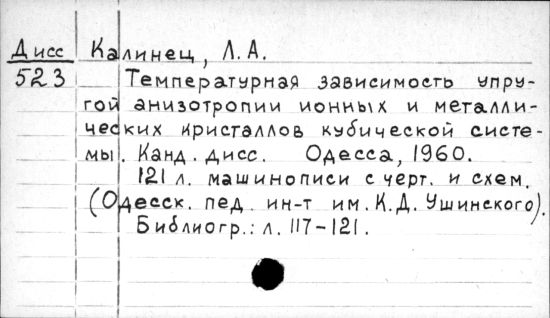 Дисс Калинец, Л.А.
523 Температурная зависимость упру-
гой анизотропии ионных и металли-
ческих кристаллов кубической систе-
мы. Канд. дисс. Одесса, 1960.
121 л. машинописи с черт. и схем.
(Одесск. пед. ин-т им. К.Д. Ушинского).
Библиогр.: л. 117-121.